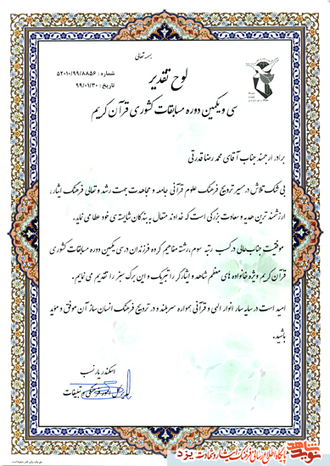 بسمه تعالی
شماره : ۵۲۰۱۰/۹۹/۸۸۵۶
تاریخ : ۹۹/۰۱/۳۰
لوح تقدیر
سی و یکمین دوره مسابقات کشوری قرآن کریم
برادر ارجمند جناب آقای محمد رضا قدرتی
بی شک تلاش در مسیر ترویج فرهنگ علوم قرآنی جامعه و مجاهدت جهت رشد و تعالی فرهنگ ایثار،
ارزشمند ترین هدیه و سعادت بزرگی است که خداوند متعال به بندگان شایسته ی خود عطا می نماید.
موفقیت جنابعالی در کسب رتبه سوم رشته مفاهیم گروه فرزندان در سی و یکمین دوره مسابقات کشوری
قرآن کریم ویژه خانواده های معظم شاهد و ایثارگر را تبریک و این برگ سبز را تقدیم می نمایم.
امید است در سایه سار انوار الهی و قرآنی همواره سربلند و در ترویج فرهنگ انسان ساز آن موفق و موید
باشید.
اسکندر پارنسب
مدیرکل امور فرهنگی و تبلیغات
نوید شاهد
پایگاه اطلاع رسانی فرهنگ ایثار و شهادت یزد